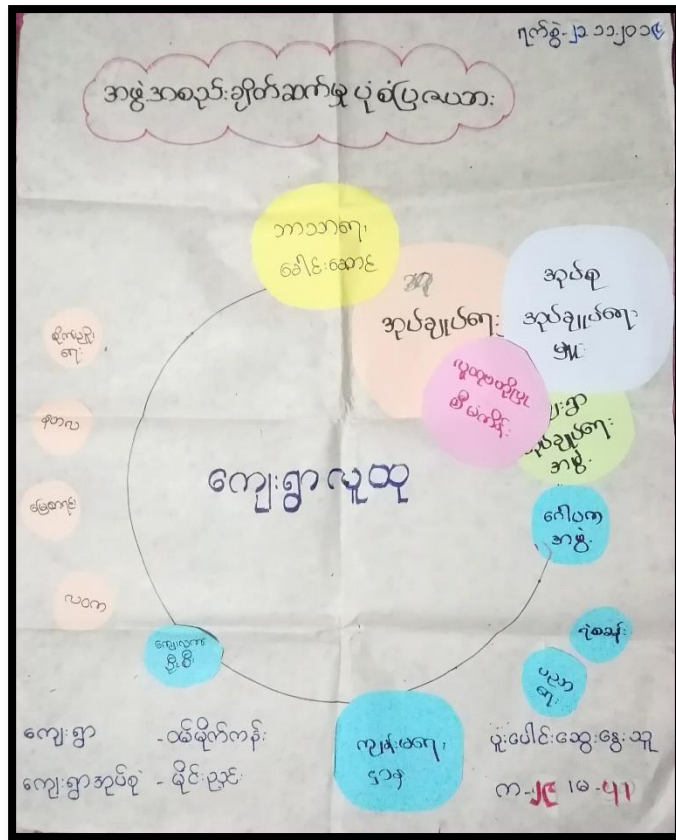 ရက်စွဲ-၂၁.၁၁.၂၀၁၄
အဖွဲ့အစည်းချိတ်ဆက်မှု ပုံစံပြဇယား
ဘာသာရေး
ခေါင်းဆောင်
အုပ်ချုပ်ရေး
အုပ်စု
အုပ်ချုပ်ရေး
မှူး
လူထုဗဟိုပြု
စီမံကိန်း
အုပ်ချုပ်ရေး
အဖွဲ့
စိုက်ပျိုး
ရေး
နတလ
မြေစာရင်း
ကျေးရွာလူထု
ဂေါပက
အဖွဲ့
လဝက
ရဲစခန်း
ပညာ
ရေး
ဦးစီး
ကျန်းမာရေး
ဌာန
ကျေးရွာ -ဝမ်မိုက်ကန်း
ကျေးရွာအုပ်စု - မိုင်းညှင်း
ပူးပေါင်းဆွေးနွေးသူ